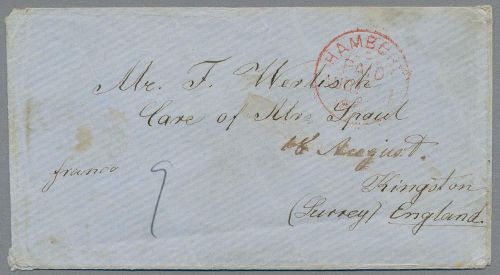 HAMBURG
PAID
Mr. F. Werlisch
Care of Mrs Spaul
18 August.
franco
9
Kingston
(Surrey) England.